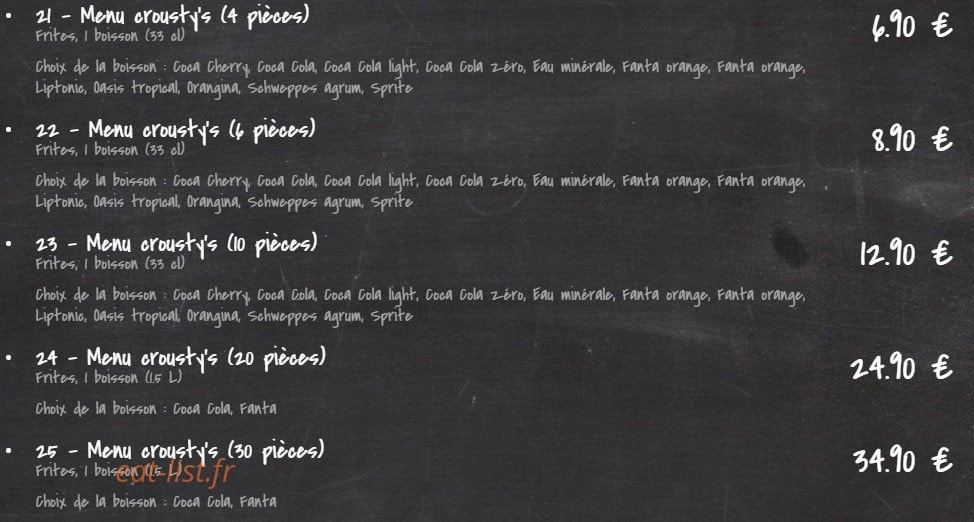 21 - Menu crousty's (4 pièces)
6.90 €
Frites, 1 boisson (33 cl)
Choix de la boisson : Coca Cherry, Coca Cola, Coca Cola light, Coca Cola zéro, Eau minérale, Fanta orange, Fanta orange,
Liptonic, Oasis tropical, Orangina, Schweppes agrum, Sprite
22 - Menu crousty's (6 pièces)
8.90 €
Frites, 1 boisson (33 cl)
Choix de la boisson : Coca Cherry, Coca Cola, Coca Cola light, Coca Cola zéro, Eau minérale, Fanta orange, Fanta orange,
Liptonic, Oasis tropical, Orangina, Schweppes agrum, Sprite
23 - Menu crousty's (10 pièces)
12.90 €
Frites, 1 boisson (33 cl)
Choix de la boisson : Coca Cherry, Coca Cola, Coca Cola light, Coca Cola zéro, Eau minérale, Fanta orange, Fanta orange,
Liptonic, Oasis tropical, Orangina, Schweppes agrum, Sprite
24 - Menu crousty's (20 pièces)
24.90 €
Frites, 1 boisson (1.5 L)
Choix de la boisson : Coca Cola, Fanta
25 - Menu crousty's (30 pièces)
34.90 €
Frites, 1 boisson (1.5 L)
eat-list.fr
Choix de la boisson : Coca Cola, Fanta